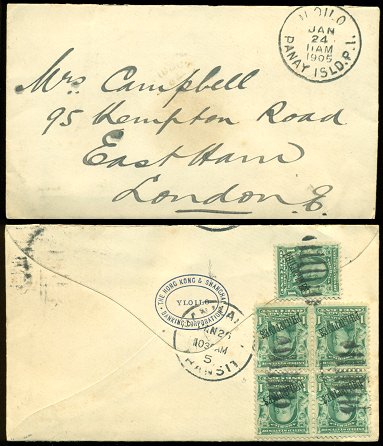 ILOILO
JAN
24
11AM
1905
PANAY ISLD. P.I.
Mrs. Campbell
95 Kempton Road
East Ham
London. E.
THE HONG KONG & SHANGHAI
YLOILO
BANKING CORPORATION
JAN 26
1030AM
5
TRANSIT
PHILIPPINES
PHILIPPINES
PHILIPPINES
PHILIPPINES